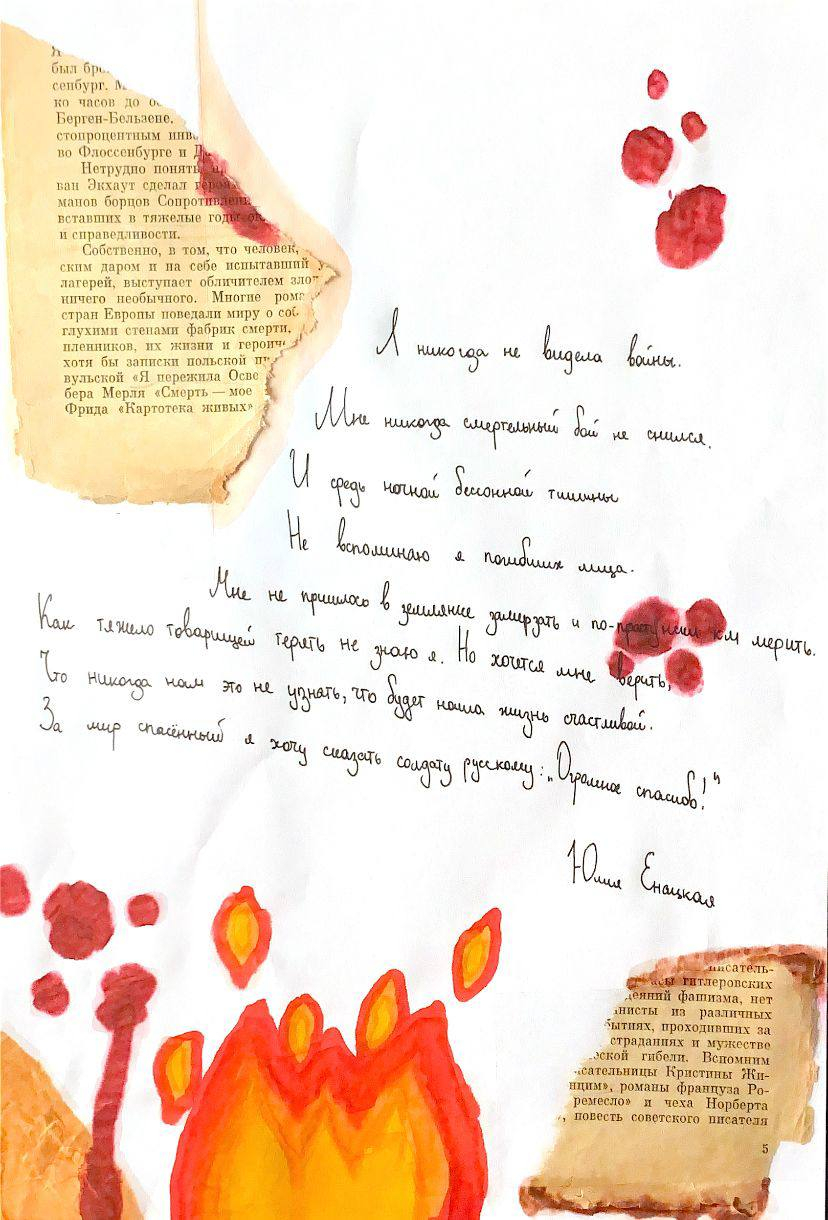 Я
был бро
сенбург. М
ко часов до ос
Берген-Бельзене.
стопроцентным инв
во Флоссенбурге и Д
Нетрудно понять,
ван Экхаут сделал героя
манов борцов Сопротивлени
вставших в тяжелые годы ок
и справедливости.
Собственно, в том, что человек,
ским даром и на себе испытавший у
лагерей, выступает обличителем зло
ничего необычного. Многие рома
стран Европы поведали миру о соб
глухими стенами фабрик смерти,
пленников, их жизни и героиче
хотя бы записки польской пи
вульской «Я пережила Осве
бера Мерля «Смерть — мое
Фрида «Картотека живых»
Я никогда не видела войны.
Мне никогда смертельный бой не снился.
И средь ночной бессонной тишины
Не вспоминаю я погибших лица.
Мне не пришлось в землянке замерзать и по-пластунски км мерить.
Как тяжело товарищей терять не знаю я. Но хочется мне верить,
Что никогда нам это не узнать, что будет наша жизнь счастливой.
За мир спасённый я хочу сказать солдату русскому: „Огромное спасибо!"
Юлия Енацкая
писатель-
асы гитлеровских
деяний фашизма, нет
анисты из различных
бытиях, проходивших за
страданиях и мужестве
ческой гибели. Вспомним
исательницы Кристины Жи-
нцим», романы француза Ро-
ремесло» и чеха Норберта
, повесть советского писателя
5